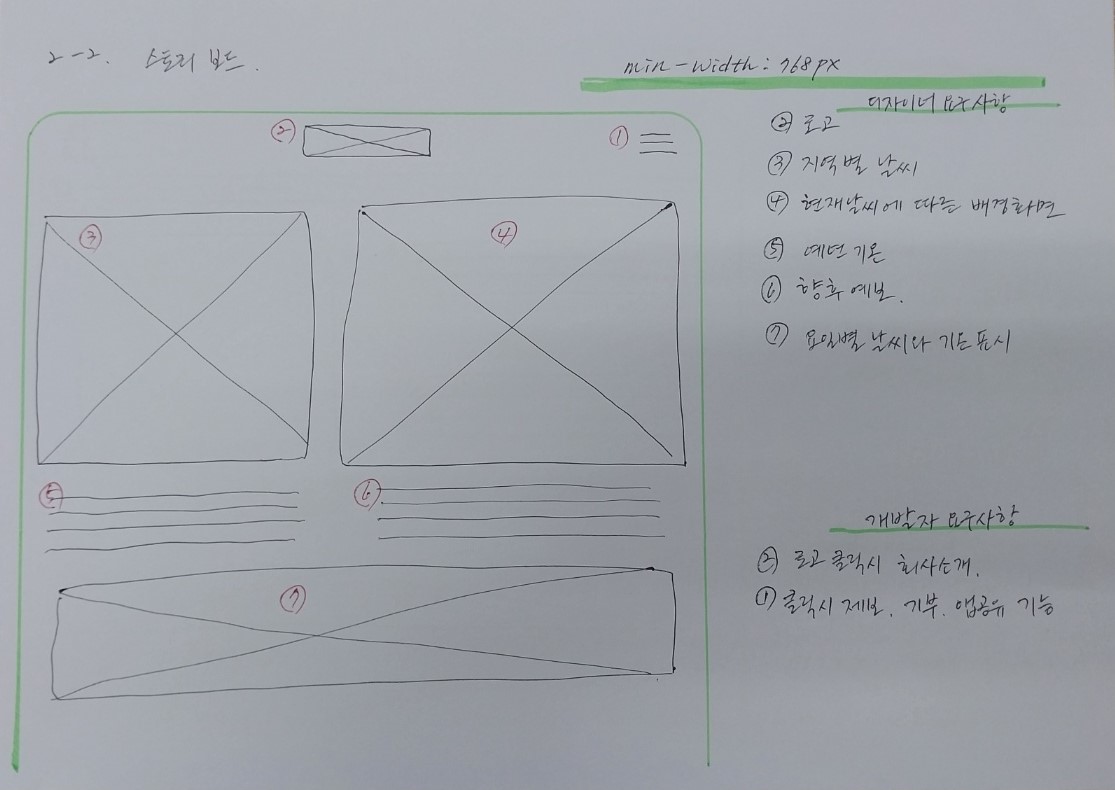 2-2. 스토리 보드.
min-width: 768px
디자이너 요구사항
② 로고
③ 지역별 날씨
④ 현재날씨에 따른 배경화면
⑤ 예년 기온
⑥ 향후 예보.
⑦ 요일별 날씨와 기온 표시
개발자 요구사항
② 로고 클릭시 회사소개.
① 클릭시 제보. 기부. 앱공유 기능
②
①
③
④
⑤
⑥
⑦